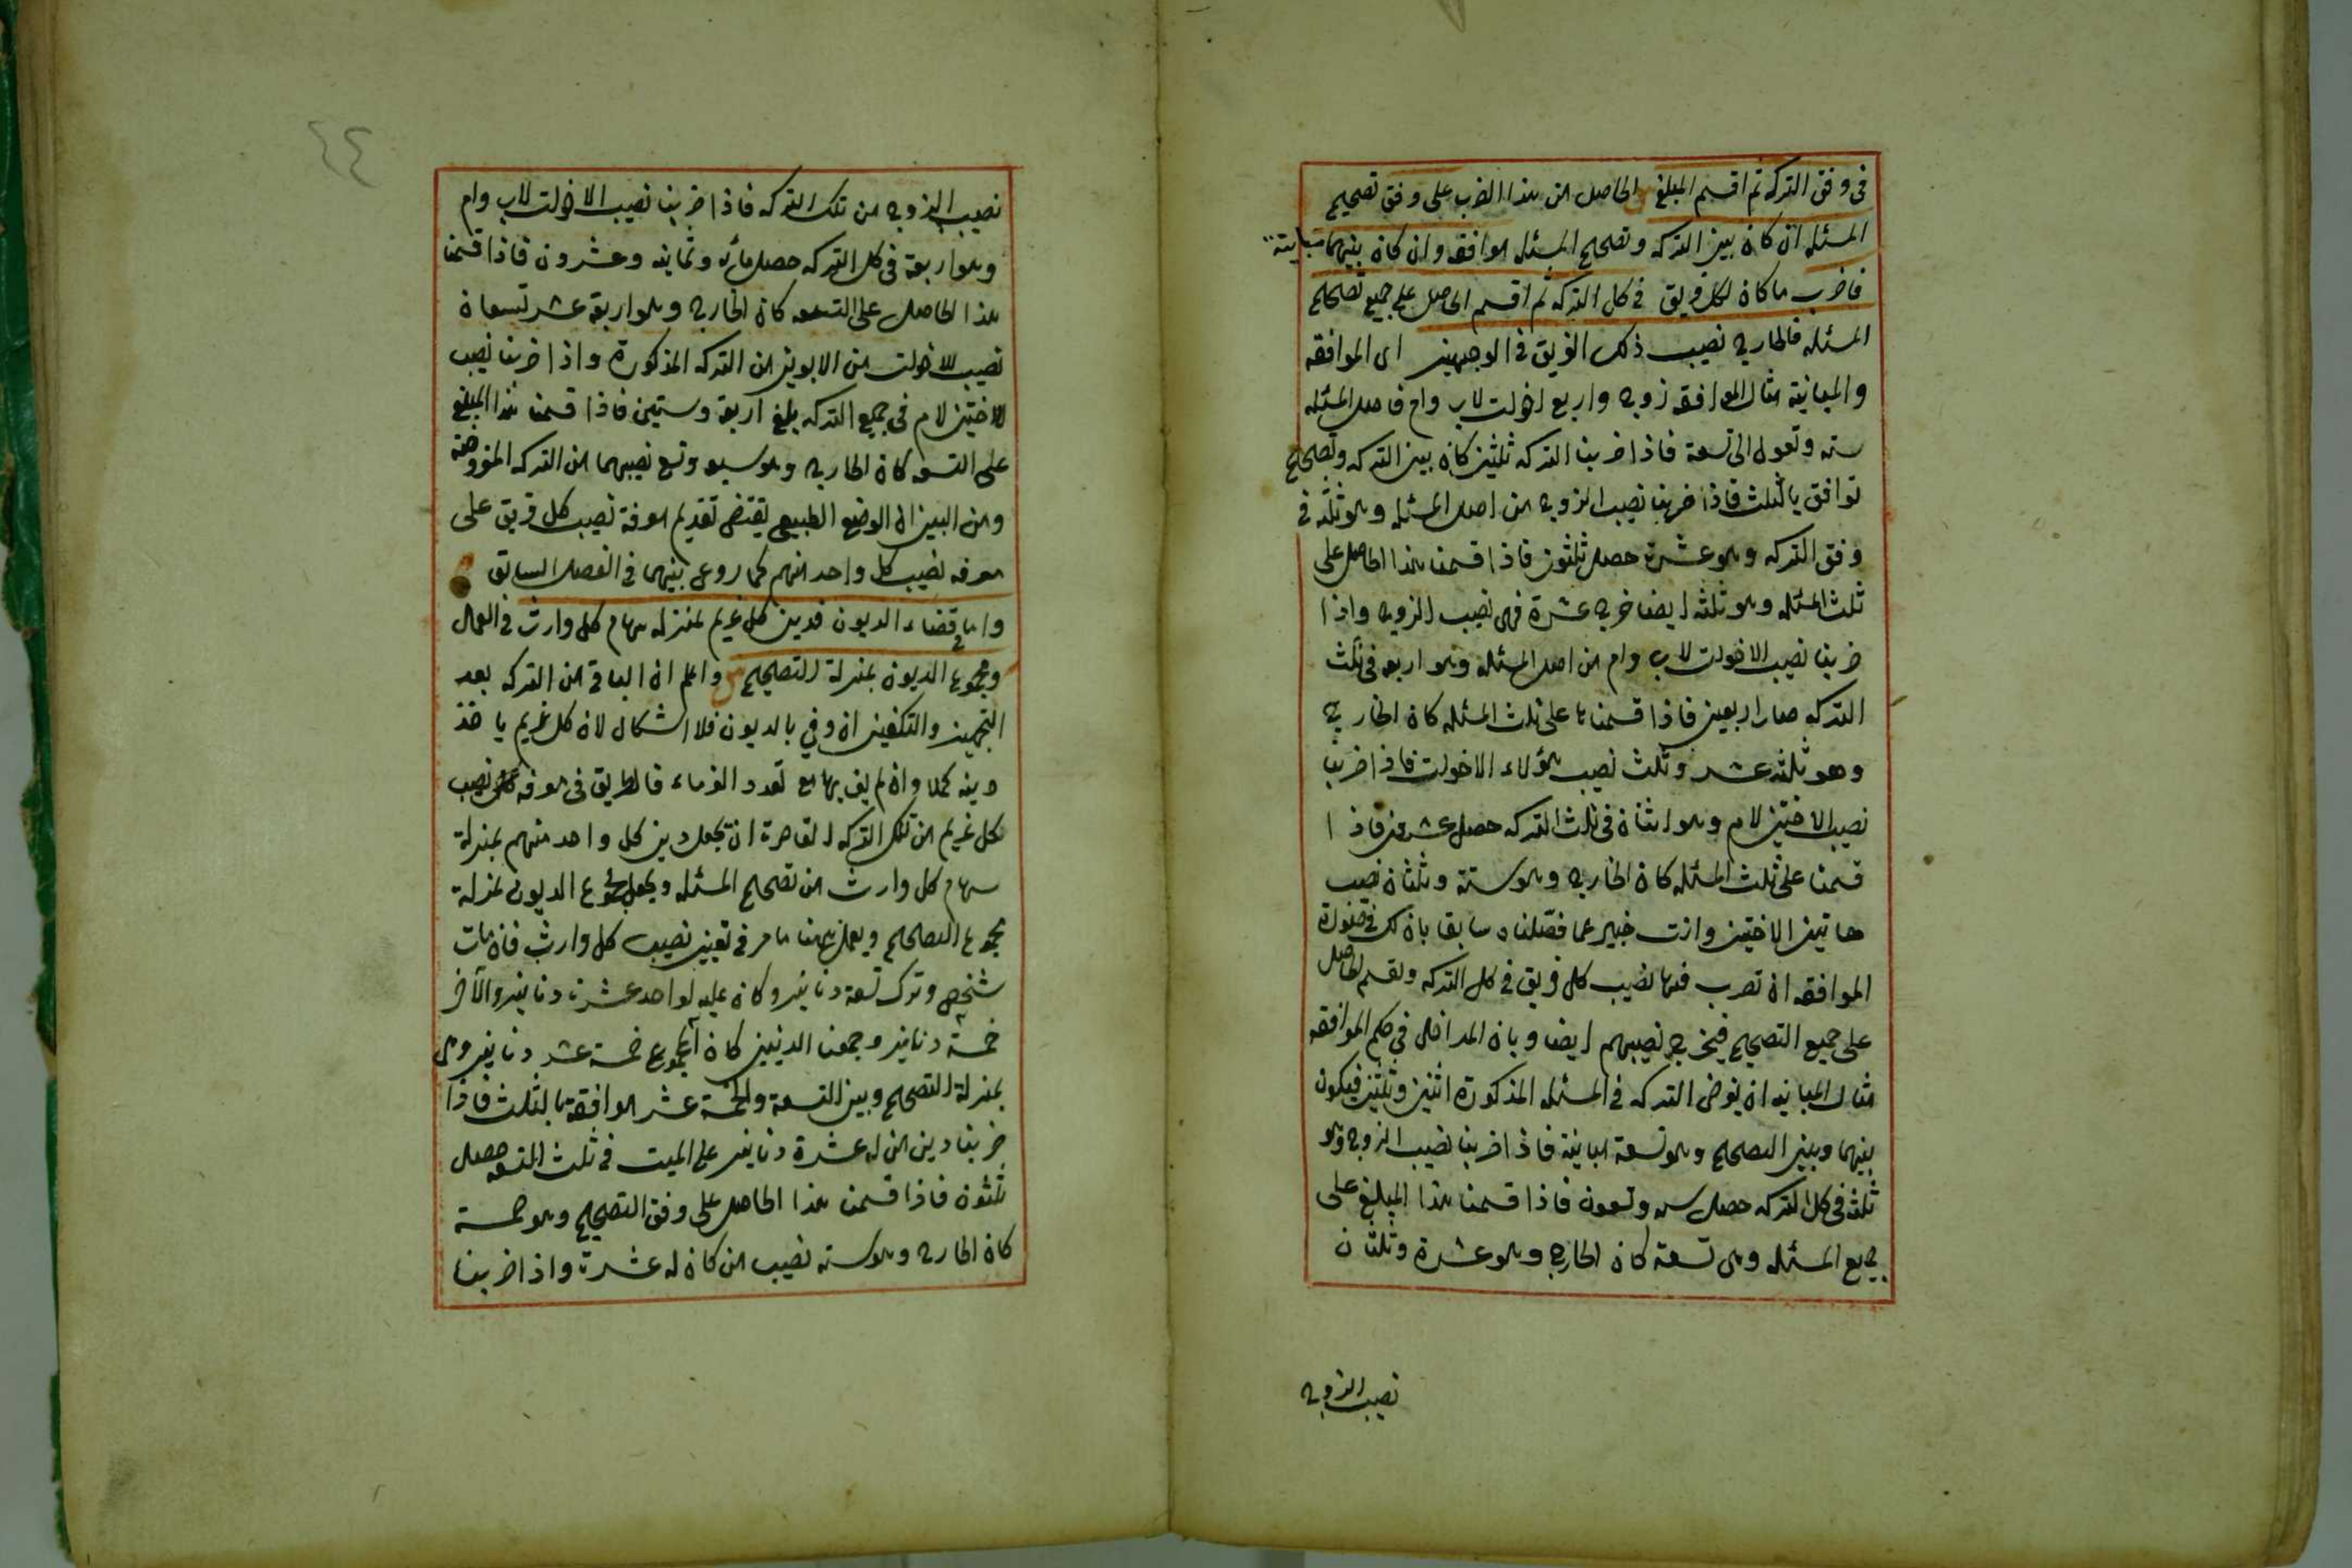 في وفق التركه ثم اقسم المبلغ الحاصل من هذا الضرب على وفق تصحيح
المسئله ان كان بين التركه وتصحيح المسئله موافقه وان كان بينهما مباينة
فاضرب ماكان لكل فريق في كل التركه ثم اقسم الحاصل على جميع تصحيح
المسئله فالخارج نصيب ذلك الفريق في الوجهين اى الموافقه
والمباينة مثال الموافقه زوج واربع اخوات لاب وام فاصل المسئله
سته وتعول الى تسعة فاذا ضربنا التركه ثلثين كان بين التركه وتصحيح
توافق بالثلث فاذا ضربنا نصيب الزوج من اصل المسئله وهو ثلثه في
وفق التركه وهو عشرة حصل ثلثون فاذا قسمنا هذا الحاصل على
ثلث المسئله وهو ثلثه ايضا خرج عشرة فهى نصيب الزوج واذا
ضربنا نصيب الاخوات لاب وام من اصل المسئله وهو اربعه في ثلث
التركه صار اربعين فاذا قسمناها على ثلث المسئله كان الخارج
وهو ثلثه عشر وثلث نصيب هؤلاء الاخوات فاذا ضربنا
نصيب الاختين لام وهو اثنان في ثلث التركه حصل عشرون فاذا
قسمنا على ثلث المسئله كان الخارج وهو ستة وثلثان نصيب
هاتين الاختين وانت خبير بما فصّلناه سابقا بان لك في صورة
الموافقه ان تضرب فيها نصيب كل فريق في كل التركه وتقسم الحاصل
على جميع التصحيح فيخرج نصيبهم ايضا وبان المداخل في حكم الموافقه
مثال المباينه ان يفرض التركه في المسئله المذكورة اثنين وثلثين فيكون
بينهما وبين التصحيح وهو تسعة مباينة فاذا ضربنا نصيب الزوج وهو
ثلثه في كل التركه حصل سته وتسعون فاذا قسمنا هذا المبلغ على
جميع المسئله وهى تسعة كان الخارج وهو عشرة وثلثان
نصيب الزوج
٤٤
نصيب الزوج من تلك التركه فاذا ضربنا نصيب الاخوات لاب وام
وهو اربعة في كل التركه حصل مائه وثمانيه وعشرون فاذا قسمنا
هذا الحاصل على التسعه كان الخارج وهو اربعة عشر وتسعان
نصيب للاخوات من الابوين من التركه المذكورة واذا ضربنا نصيب
الاختين لام في جميع التركه بلغ اربعة وستين فاذا قسمنا هذا المبلغ
على التسعه كان الخارج وهو سبعه وتسع نصيبهما من التركه المفروضة
ومن البين ان الوضع الطبيعى يقتضى تقديم معرفة نصيب كل فريق على
معرفه نصيب كل واحد منهم كما روعى بينهما في الفصل السابق
واما في قضاء الديون فدين كل غريم بمنزله سهام كل وارث في العمل
ومجموع الديون بمنزلة التصحيح واعلم ان الباقى من التركه بعد
التجهيز والتكفين ان وفي بالديون فلا اشكال لان كل غريم ياخذ
دينه كملا وان لم يف بها مع تعدد الغرماء فالطريق في معرفه نصيب
كل غريم من تلك التركه القاصرة ان تجعل دين كل واحد منهم بمنزلة
سهام كل وارث من تصحيح المسئله ويجعل مجموع الديون بمنزلة
مجموع التصحيح ويعمل ههنا ما مر في تعيين نصيب كل وارث فان مات
شخص وترك تسعة دنانير وكان عليه لواحد عشرة دنانير والآخر
خمسة دنانير وجمعنا الدينين كان المجموع خمسة عشر دنانير وهى
بمنزلة التصحيح وبين التسعة والخمسة عشر موافقة بالثلث فاذا
ضربنا دين من له عشرة دنانير على الميت في ثلث التسعه حصل
ثلثون فاذا قسمنا هذا الحاصل على وفق التصحيح وهو خمسة
كان الخارج وهو سته نصيب من كان له عشرة واذا ضربنا